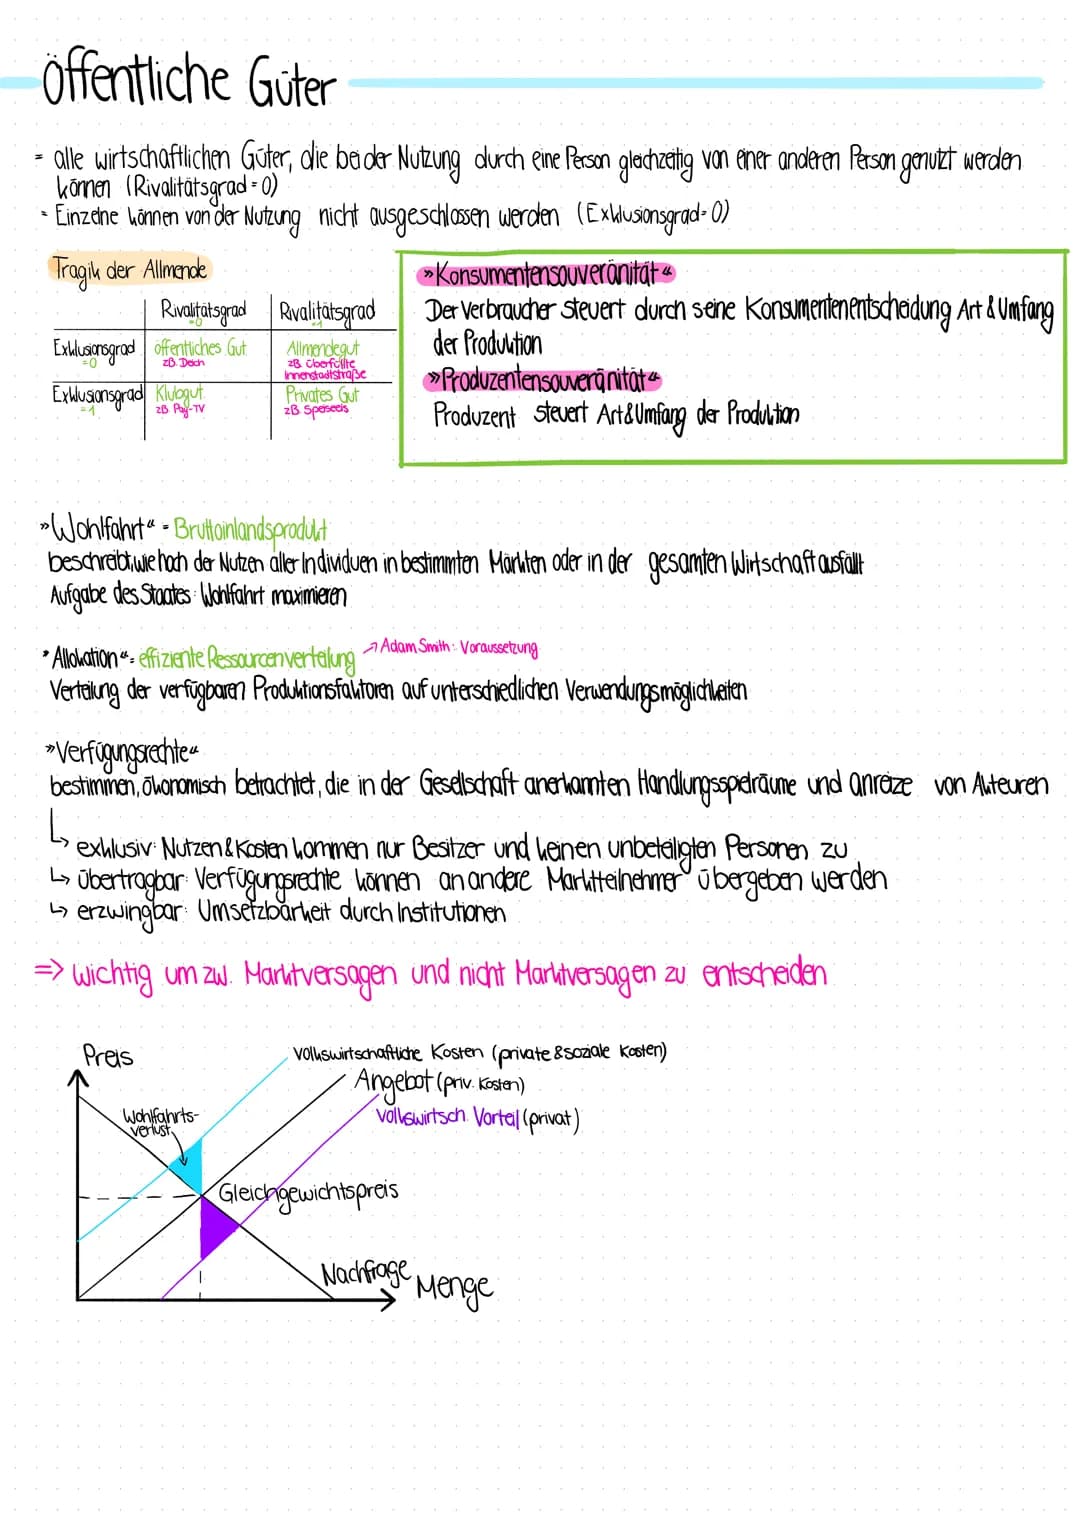 Öffentliche Güter
= alle wirtschaftlichen Güter, die bei der Nutzung durch eine Person gleichzeitig von einer anderen Person genutzt werden
können (Rivalitätsgrad = 0)
= Einzelne können von der Nutzung nicht ausgeschlossen werden (Exklusionsgrad = 0)
Tragik der Allmende
Rivalitätsgrad =0
Rivalitätsgrad =1
Exklusionsgrad =0
öffentliches Gut
zB. Deich
Allmendegut
zB. überfüllte
Innenstadtstraße
Exklusionsgrad =1
Klubgut
zB Pay-TV
Privates Gut
zB Speiseeis
»Konsumentensouveränität«
Der Verbraucher steuert durch seine Konsumentenentscheidung Art & Umfang
der Produktion
»Produzentensouveränität«
Produzent steuert Art & Umfang der Produktion
»Wohlfahrt« = Bruttoinlandsprodukt
beschreibt, wie hoch der Nutzen aller Individuen in bestimmten Märkten oder in der gesamten Wirtschaft ausfällt
Aufgabe des Staates: Wohlfahrt maximieren
"Allokation" = effiziente Ressourcenverteilung ↗ Adam Smith: Voraussetzung
Verteilung der verfügbaren Produktionsfaktoren auf unterschiedlichen Verwendungsmöglichkeiten
»Verfügungsrechte«
bestimmen, ökonomisch betrachtet, die in der Gesellschaft anerkannten Handlungsspielräume und anreize von Akteuren
↳ exklusiv: Nutzen & Kosten kommen nur Besitzer und keinen unbeteiligten Personen zu
↳ übertragbar: Verfügungsrechte können an andere Marktteilnehmer übergeben werden
↳ erzwingbar: Umsetzbarkeit durch Institutionen
=> wichtig um zw. Marktversagen und nicht Marktversagen zu entscheiden
Preis
Volkswirtschaftliche Kosten (private & soziale Kosten)
Angebot (priv. Kosten)
Volkswirtsch. Vorteil (privat)
Wohlfahrts-
verlust
Gleichgewichtspreis
Nachfrage
Menge